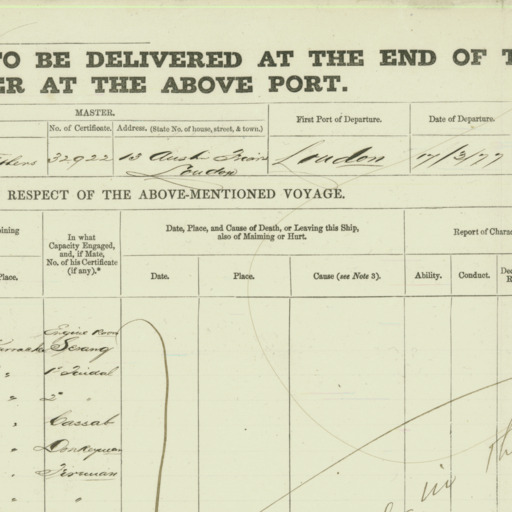 TO BE DELIVERED AT THE END OF T
ER AT THE ABOVE PORT.
MASTER.
No. of Certificate.
Address. (State No. of house, street, & town.)
First Port of Departure.
Date of Departure.
32922
13
London
London
17/3/77
RESPECT OF THE ABOVE-MENTIONED VOYAGE.
ining
Place.
In what
Capacity Engaged,
and, if Mate,
No. of his Certificate
(if any).*
Date, Place, and Cause of Death, or Leaving this Ship,
also of Maiming or Hurt.
Date.
Place.
Cause (see Note 3).
Report of Charac
Ability.
Conduct.
Engine Room
Serang
1st Tindal
2 "
Cassab
Donkeyman
Fireman
" "
in Th